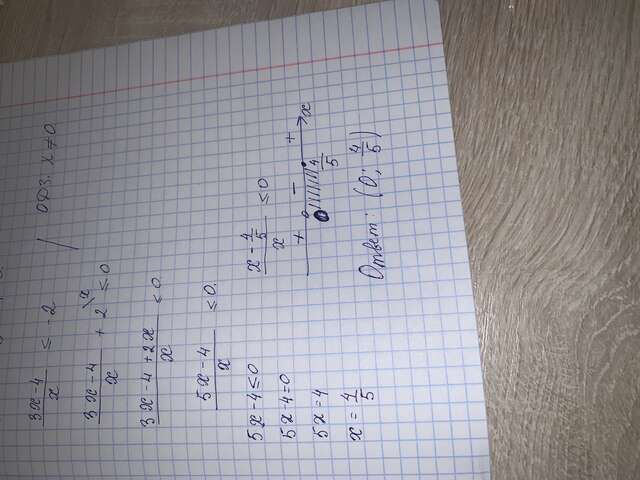 3x-4/x ≤ -2 | ОДЗ: x≠0.
3x-4/x + 2\x ≤ 0
3x-4+2x/x ≤ 0
5x-4/x ≤ 0.
5x-4≤0
5x-4=0
5x=4
x = 4/5
x - 4/5/x ≤ 0
+ - + x
0 4/5
Ответ: (0; 4/5)